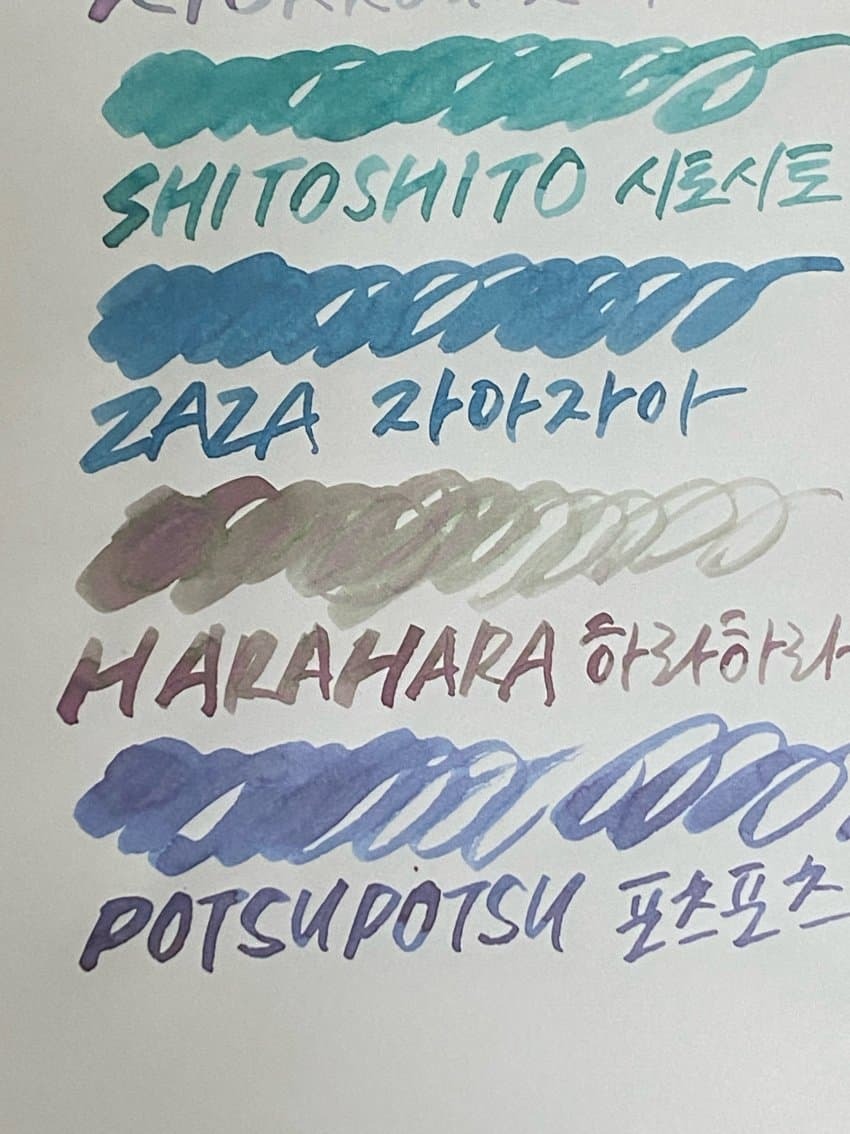 SHITOSHITO 시토시토
ZAZA 자아자아
HARAHARA 하라하라
POTSUPOTSU 포츠포츠